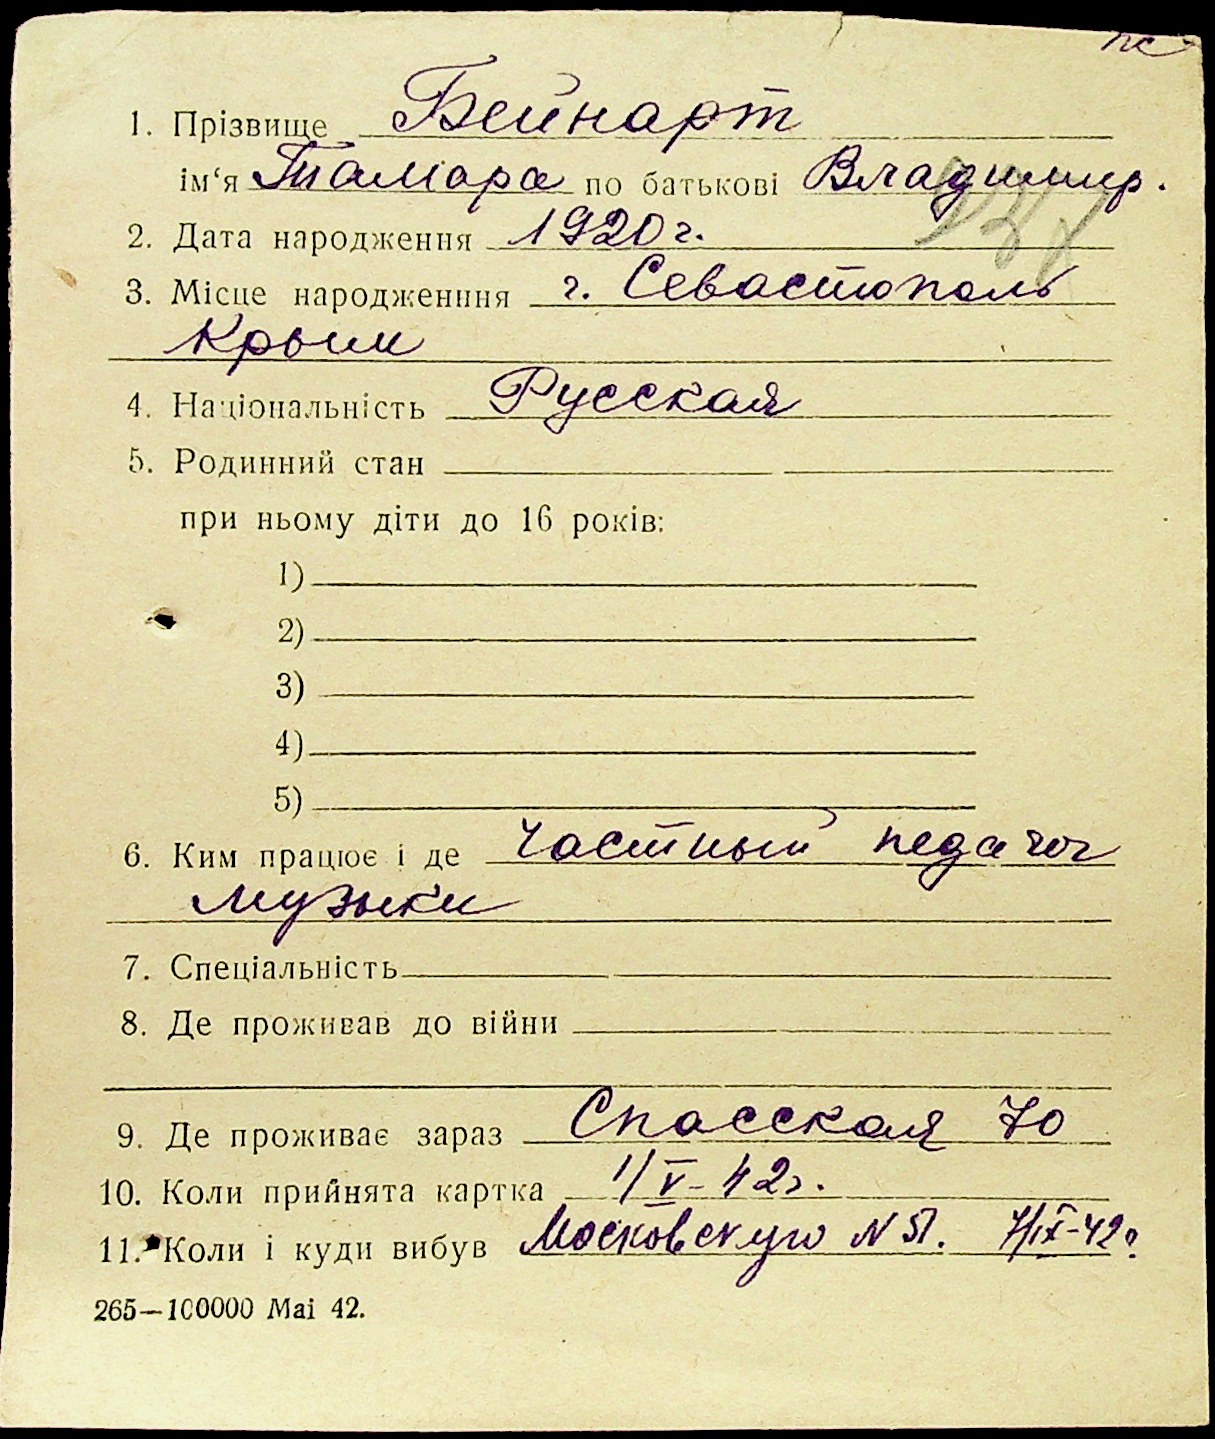 1. Прізвище Бейнарт
ім‘я Тамара по батькові Владимир.
2. Дата народження 1920 г.
3. Місце народженння г. Севастополь
Крым
4. Національність Русская
5. Родинний стан
при ньому діти до 16 років:
1)
2)
3)
4)
5)
6. Ким працює і де частный педагог
музыки
7. Спеціальність
8. Де проживав до війни
9. Де проживає зараз Спасская 70
10. Коли прийнята картка 1/V-42г.
11. Коли і куди вибув Московскую N 51. 7/IX-42г
265—100000 Mai 42.